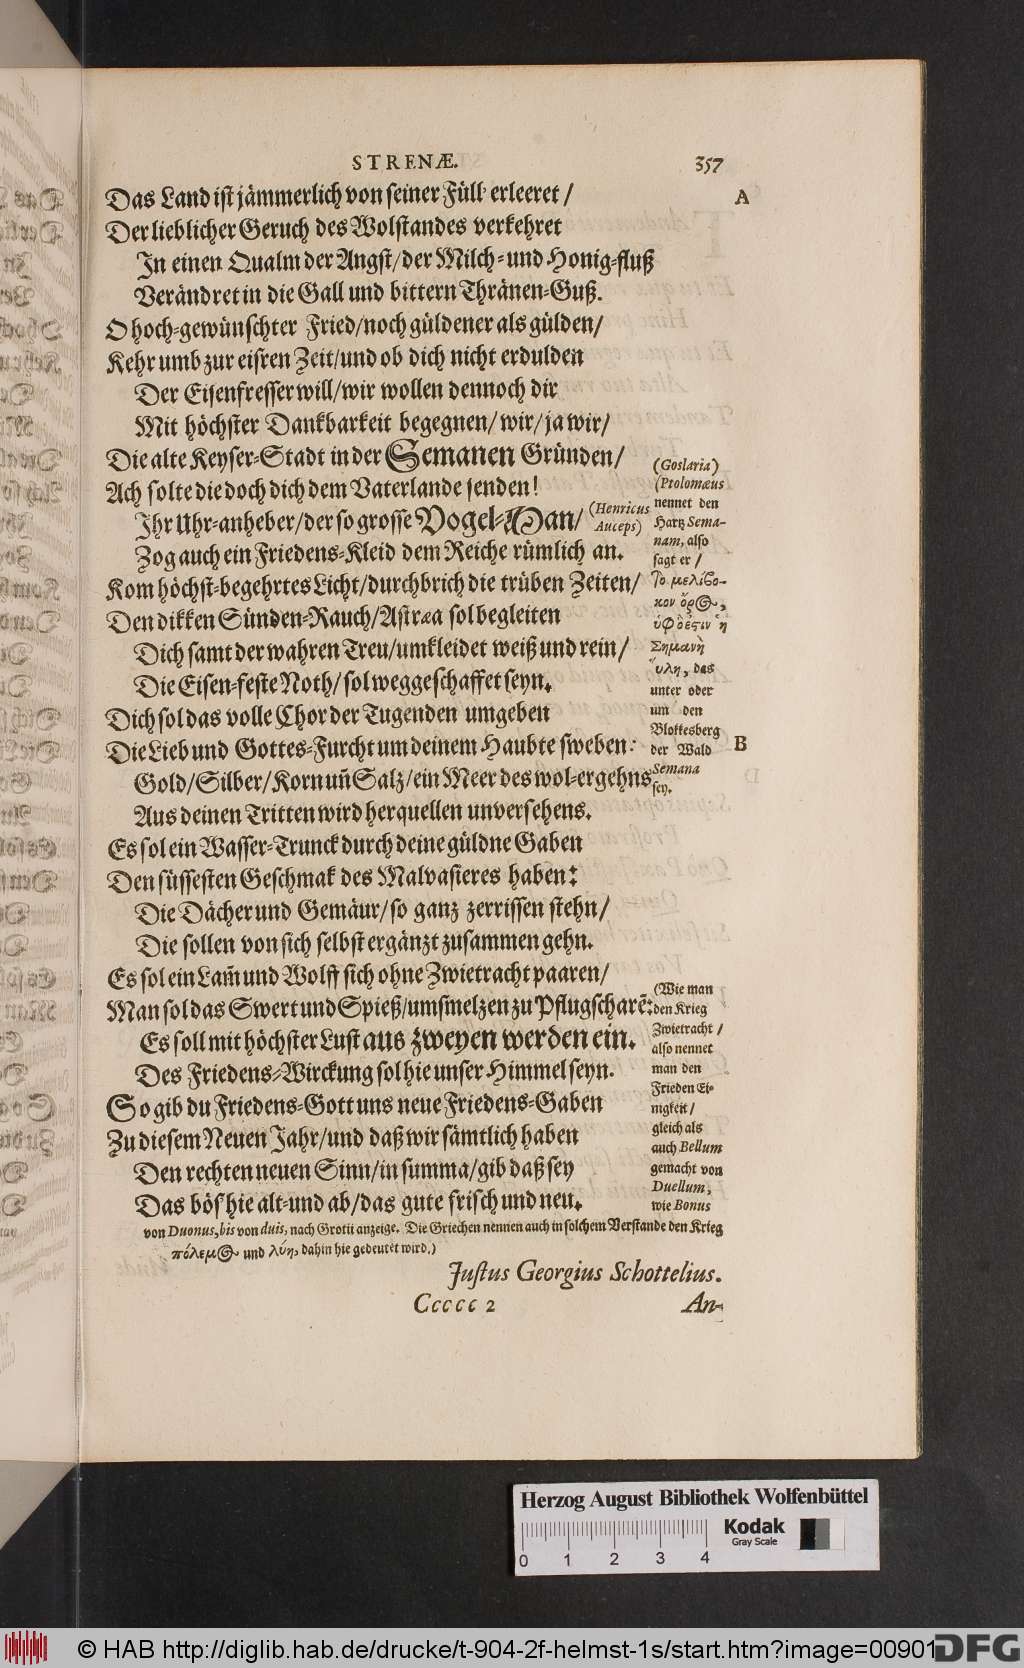 STRENÆ. 357
Das Land ist jämmerlich von seiner Füll' erleeret / A
Der lieblicher Geruch des Wolstandes verkehret
In einen Qualm der Angst / der Milch-und Honig-fluß
Verändret in die Gall und bittern Thränen-Guß.
O hoch-gewünschter Fried / noch güldener als gülden /
Kehr umb zur eisren Zeit / und ob dich nicht erdulden
Der Eisenfresser will / wir wollen dennoch dir
Mit höchster Dankbarkeit begegnen / wir / ja wir /
Die alte Keyser-Stadt in der Semanen Gründen /
Ach solte die doch dich dem Vaterlande senden!
Ihr Uhr-anheber / der so grosse Vogel-Man /
Zog auch ein Friedens-Kleid dem Reiche rümlich an.
Kom höchst-begehrtes Licht / durchbrich die trüben Zeiten /
Den dikken Sünden-Rauch / Astræa sol begleiten
Dich samt der wahren Treu / umkleidet weiß und rein /
Die Eisen-feste Noth / sol weggeschaffet seyn.
Dich sol das volle Chor der Tugenden umgeben
Die Lieb und Gottes-Furcht um deinem Haubte sweben: B
Gold / Silber / Korn uñ Salz / ein Meer des wol-ergehns
Aus deinen Tritten wird herquellen unversehens.
Es sol ein Wasser-Trunck durch deine güldne Gaben
Den süssesten Geschmak des Malvasieres haben:
Die Dächer und Gemäur / so ganz zerrissen stehn /
Die sollen von sich selbst ergänzt zusammen gehn.
Es sol ein Lam̃ und Wolff sich ohne Zwietracht paaren /
Man sol das Swert und Spieß / umsmelzen zu Pflugscharẽ:
Es soll mit höchster Lust aus zweyen werden ein.
Des Friedens-Wirckung sol hie unser Himmel seyn.
So gib du Friedens-Gott uns neue Friedens-Gaben
Zu diesem Neuen Jahr / und daß wir sämtlich haben
Den rechten neuen Sinn / in summa / gib daß sey
Das bös' hie alt-und ab / das gute frisch und neu.
(Henricus
Auceps)
(Goslaria)
(Ptolomæus
nennet den
Hartz Sema-
nam, also
sagt er /
Τὸ μελίβο-
κον ὄρ⊙,
ὑφ' ὃ ἐςὶν ἡ
Σημανὴ
ὕλη, das
unter oder
um den
Blokkesberg
der Wald
Semana
sey.
(Wie man
den Krieg
Zwietracht /
also nennet
man den
Frieden Ei-
nigkeit /
gleich als
auch Bellum
gemacht von
Duellum,
wie Bonus
von Duonus, bis von duis, nach Grotii anzeige. Die Griechen nennen auch in solchem Verstande den Krieg
πόλεμ⊙ und λύη, dahin hie gedeutet wird.)
Justus Georgius Schottelius.
Ccccc 2 An-
Herzog August Bibliothek Wolfenbüttel
0 1 2 3 4
Kodak
Gray Scale
© HAB http://diglib.hab.de/drucke/t-904-2f-helmst-1s/start.htm?image=00901
DFG